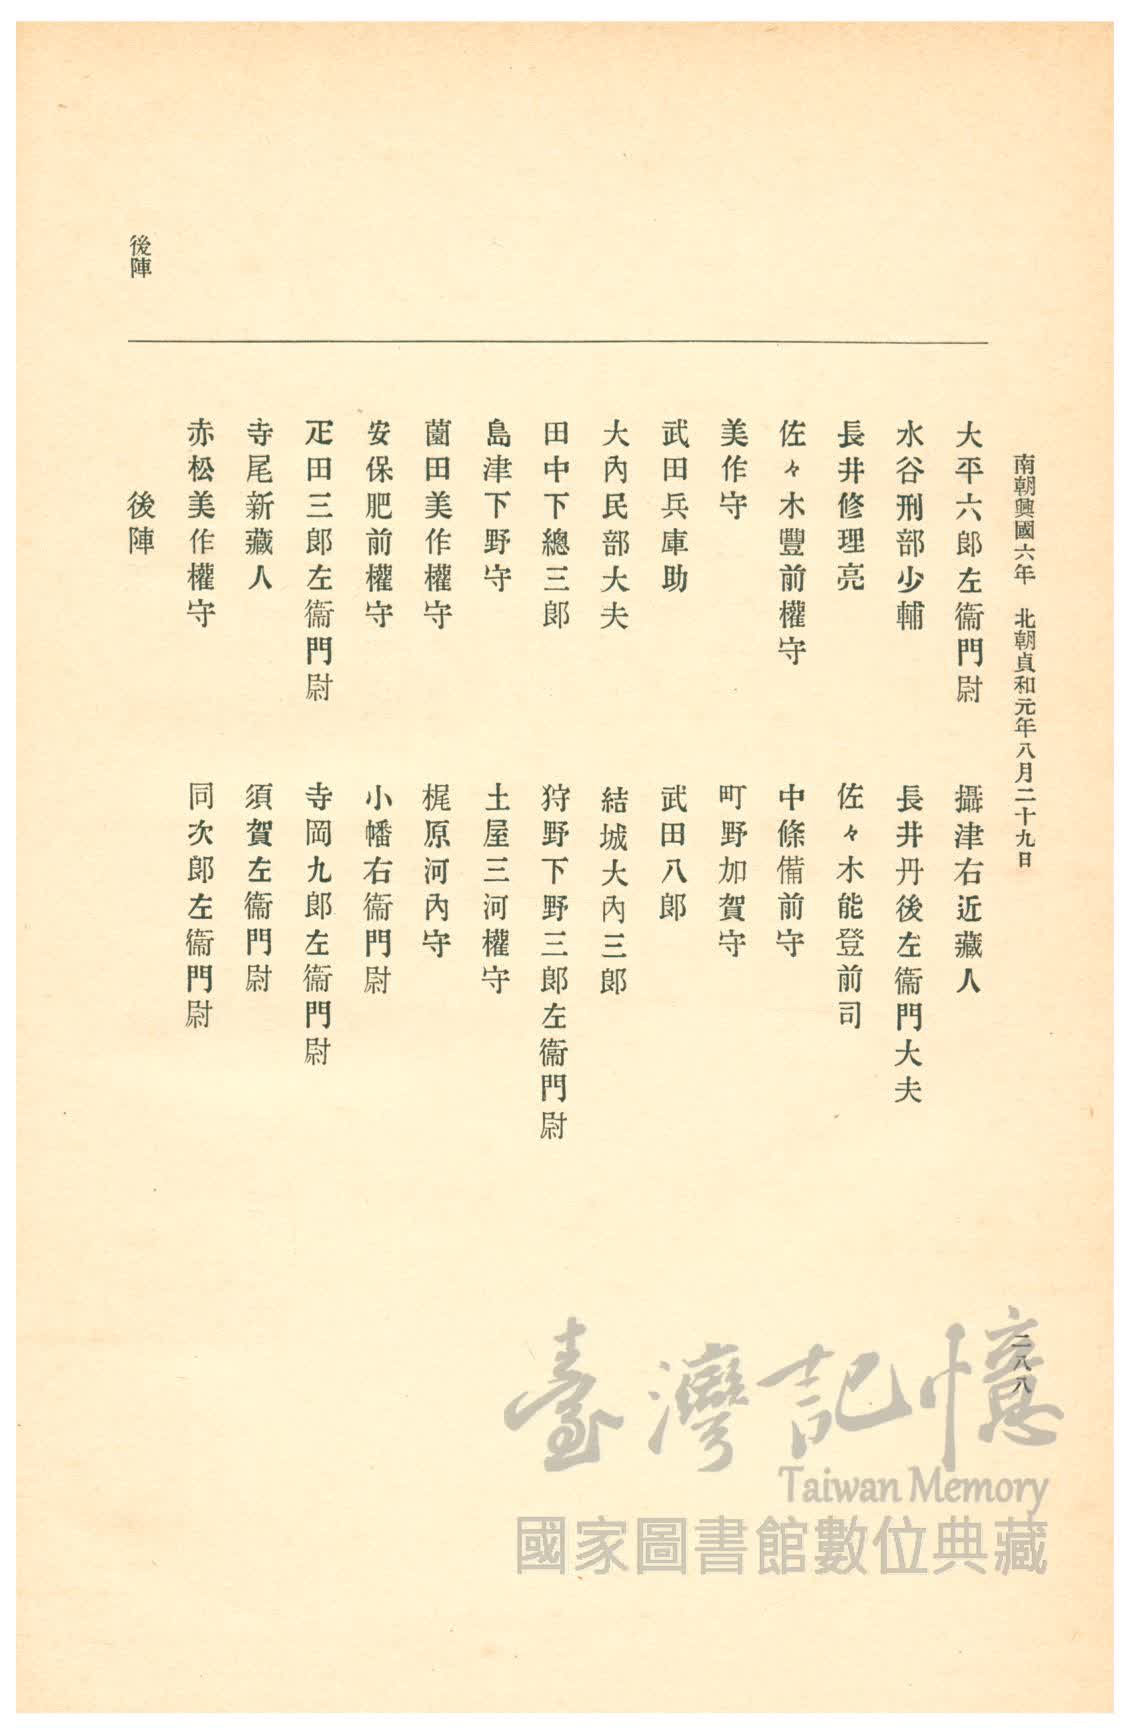 南朝興國六年　北朝貞和元年八月二十九日
二八八
大平六郎左衞門尉　攝津右近藏人
水谷刑部少輔　長井丹後左衞門大夫
長井修理亮　佐々木能登前司
佐々木豐前權守　中條備前守
美作守　町野加賀守
武田兵庫助　武田八郎
大內民部大夫　結城大內三郎
田中下總三郎　狩野下野三郎左衞門尉
島津下野守　土屋三河權守
薗田美作權守　梶原河內守
安保肥前權守　小幡右衞門尉
疋田三郎左衞門尉　寺岡九郎左衞門尉
寺尾新藏人　須賀左衞門尉
赤松美作權守　同次郎左衞門尉
後陣
後陣
臺灣記憶
Taiwan Memory
國家圖書館數位典藏